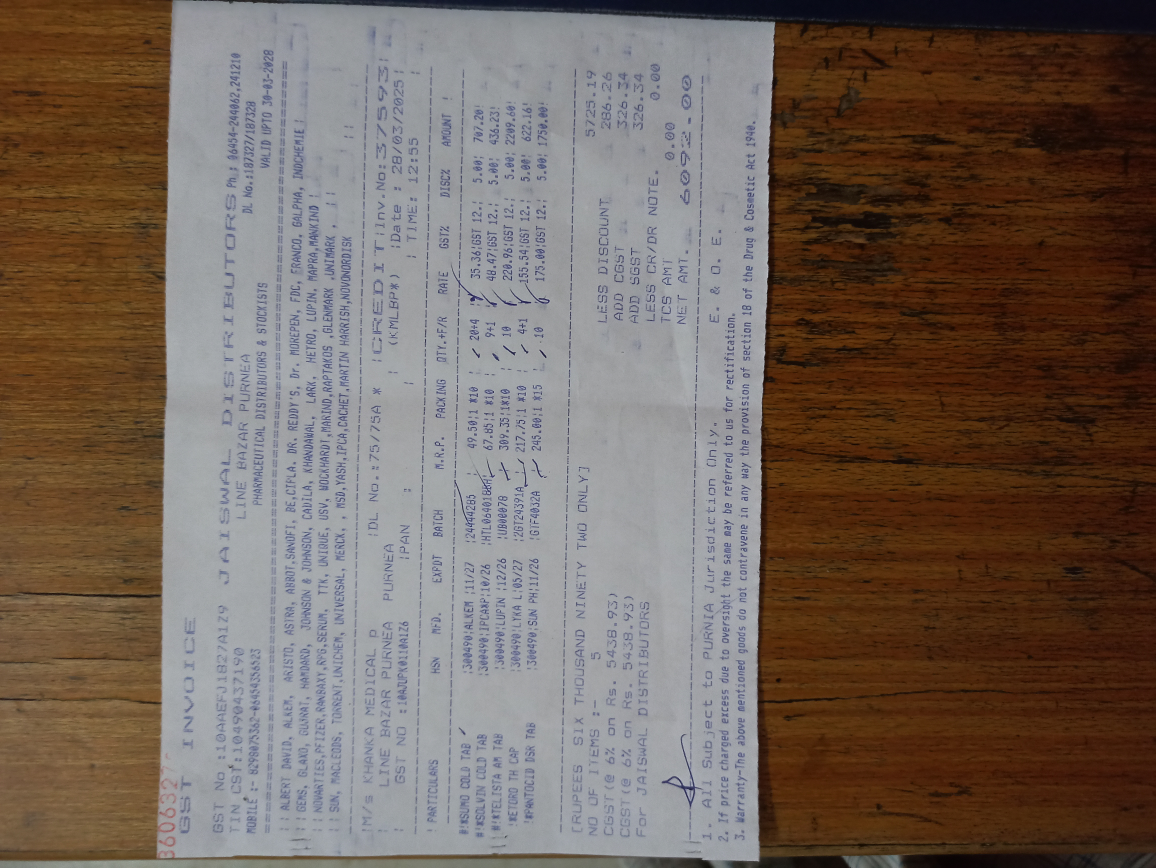 360632
GST INVOICE
GST No :10AAEFJ1827A1Z9 JAISWAL DISTRIBUTORS Ph.: 06454-244062,241210
TIN CST:10490437190 LINE BAZAR PURNEA DL No.:187327/187328
MOBILE :- 8298075362-06454356523 PHARMACEUTICAL DISTRIBUTORS & STOCKISTS VALID UPTO 30-03-2028
! ! ALBERT DAVID, ALKEM, ARISTO, ASTRA, ABBOT,SANOFI, BE,CIPLA, DR. REDDY'S, Dr. MOREPEN, FDC, FRANCO, GALPHA, INDCHEMIE !
! ! GEMS, GLAXO, GUJRAT, HAMDARD, JOHNSON & JOHNSON, CADILA, KHANDAWAL, LARK, HETRO, LUPIN, MAPRA,MANKIND !
! ! NOVARTIES,PFIZER,RANBAXY,RPG,SERUM, TTK, UNIQUE, USV, WOCKHARDT,MARIND,RAPTAKOS ,GLENMARK ,UNIMARK , !!
! ! SUN, MACLEODS, TORRENT,UNICHEM, UNIVERSAL, MERCK, , MSD,YASH,IPCA,CACHET,MARTIN HARRISH,NOVONORDISK !!
!M/s KHANKA MEDICAL P !DL No.:75/75A * !CREDIT!Inv.No:37593!
! LINE BAZAR PURNEA PURNEA (KMLBP*) !Date : 28/03/2025!
! GST NO :10AJUPK0110A1Z6 !PAN : ! ! TIME: 12:55 !
! PARTICULARS HSN MFD. EXPDT BATCH M.R.P. PACKING QTY.+F/R RATE GST% DISC% AMOUNT !
#!*SUMO COLD TAB !300490!ALKEM !11/27 !24444285 ! 49.50!1 *10 ! 20+4 ! 35.36!GST 12.! 5.00! 707.20!
#!*SOLVIN COLD TAB !300490!IPCA*P!10/26 !HTL064018 ! 67.85!1 *10 ! 9+1 ! 48.47!GST 12.! 5.00! 436.23!
#!*TELISTA AM TAB !300490!LUPIN !12/26 !UB00078 309.35!1*10 ! 10 220.96!GST 12.! 5.00! 2209.60!
!*ETORO TH CAP !300490!LYKA L!05/27 !2GT24391A ! 217.75!1 *10 ! 4+1 !155.54!GST 12.! 5.00! 622.16!
!*PANTOCID DSR TAB !300490!SUN PH!11/26 !GTF4032A 245.00!1 *15 10 175.00!GST 12.! 5.00! 1750.00!
[RUPEES SIX THOUSAND NINETY TWO ONLY] 5725.19
NO OF ITEMS :- 5 LESS DISCOUNT 286.26
CGST(@ 6% on Rs. 5438.93) ADD CGST 326.34
CGST(@ 6% on Rs. 5438.93) ADD SGST 326.34
For JAISWAL DISTRIBUTORS LESS CR/DR NOTE. 0.00
TCS AMT 0.00
NET AMT. 6092.00
1. All Subject to PURNIA Jurisdiction Only. E. & O. E.
2. If price charged excess due to oversight the same may be referred to us for rectification.
3. Warranty-The above mentioned goods do not contravene in any way the provision of section 18 of the Drug & Cosmetic Act 1940.